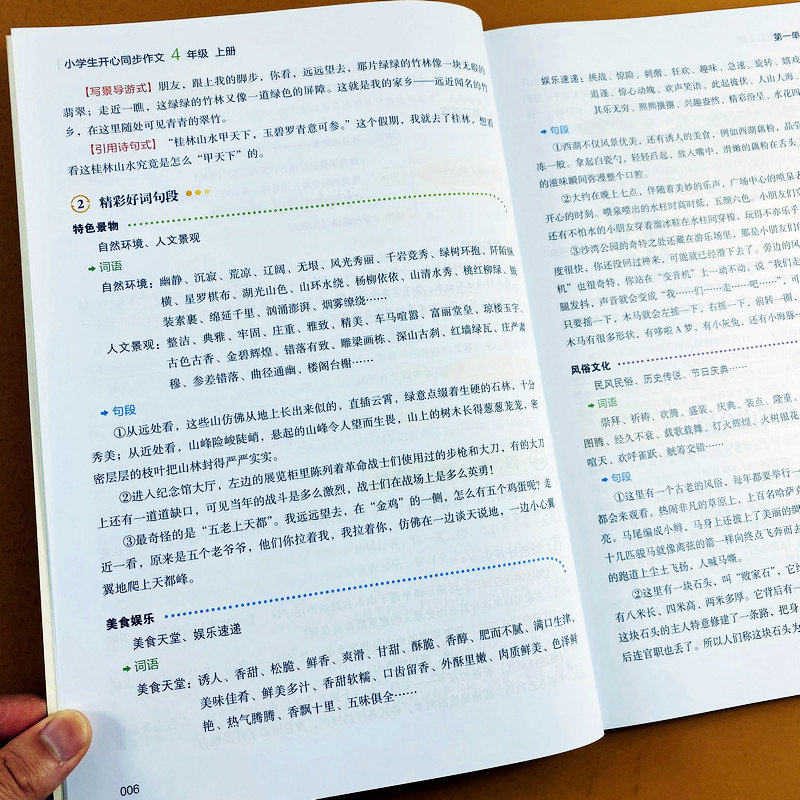 小学生开心同步作文 4 年级 上册
【写景导游式】朋友，跟上我的脚步，你看，远远望去，那片绿绿的竹林像一块无瑕的
翡翠；走近一瞧，这绿绿的竹林又像一道绿色的屏障。这就是我的家乡——远近闻名的竹
乡，在这里随处可见青青的翠竹。
【引用诗句式】“桂林山水甲天下，玉碧罗青意可参。”这个假期，我就去了桂林，想看
看这桂林山水究竟是怎么“甲天下”的。
2 精彩好词句段
特色景物
自然环境、人文景观
词语
自然环境：幽静、沉寂、荒凉、辽阔、无垠、风光秀丽、千岩竞秀、绿树环抱、阡陌纵
横、星罗棋布、湖光山色、山环水绕、杨柳依依、山清水秀、桃红柳绿、银
装素裹、绵延千里、汹涌澎湃、烟雾缭绕……
人文景观：整洁、典雅、牢固、庄重、雅致、精美、车马喧嚣、富丽堂皇、琼楼玉宇、
古色古香、金碧辉煌、错落有致、雕梁画栋、深山古刹、红墙绿瓦、庄严肃
穆、参差错落、曲径通幽、楼阁台榭……
句段
①从远处看，这些山仿佛从地上长出来似的，直插云霄，绿意点缀着生硬的石林，十分
秀美；从近处看，山峰险峻陡峭，悬起的山峰令人望而生畏，山上的树木长得葱葱茏茏，密
密层层的枝叶把山林封得严严实实。
②进入纪念馆大厅，左边的展览柜里陈列着革命战士们使用过的步枪和大刀，有的大刀
上还有一道道缺口，可见当年的战斗是多么激烈，战士们在战场上是多么英勇！
③最奇怪的是“五老上天都”。我远远望去，在“金鸡”的一侧，怎么有五个鸡蛋呢？走
近一看，原来是五个老爷爷，他们你拉着我，我拉着你，仿佛在一边谈天说地，一边小心翼
翼地爬上天都峰。
美食娱乐
美食天堂、娱乐速递
词语
美食天堂：诱人、香甜、松脆、鲜香、爽滑、甘甜、酥脆、香醇、肥而不腻、满口生津、
美味佳肴、鲜美多汁、香甜软糯、口齿留香、外酥里嫩、肉质鲜美、色泽鲜
艳、热气腾腾、香飘十里、五味俱全……
006
第一单
娱乐速递：挑战、惊险、刺激、狂欢、趣味、急速、旋转、嬉戏
追逐、惊心动魄、欢声笑语、此起彼伏、人山人海、
其乐无穷、熙熙攘攘、兴趣盎然、精彩纷呈、水花四
句段
①西湖不仅风景优美，还有诱人的美食，例如西湖藕粉，晶莹
冻一般。拿起白瓷勺，轻轻舀起，放入嘴中，滑嫩的藕粉在舌头上
的滋味瞬间弥漫整个口腔。
②大约在晚上七点，伴随着美妙的乐声，广场中心的喷泉表
开心的时刻。喷泉喷出的水柱时高时低，五颜六色。小朋友们穿
还有不怕水的小朋友穿着溜冰鞋在水柱间穿梭，玩得不亦乐乎
③沙湾公园的奇特之处还藏在游乐场里，那是小朋友们的
度很快，你还没回过神来，可能就已经滑下去了。旁边的风
机”也很奇特，你站在“变音机”上一动不动，说“我们走
腿发抖，声音就会变成“我……们……走……吧……”，可
只要摇一下，木马就会左摇一下，右摇一下，前转一圈，
木马有很多形状，有哆啦A梦，有小灰兔，还有小海豚…
风俗文化
民风民俗、历史传说、节日庆典……
词语
崇拜、祈祷、欢腾、盛装、庆典、装点、隆重、
图腾、经久不衰、载歌载舞、灯火辉煌、火树银花
喧天、欢呼雀跃、觥筹交错……
句段
①这里有一个古老的风俗，每年都要举行一
都会来观看。热闹非凡的草原上，上百名哈萨克
亮。马尾编成小辫，马身上还披上了美丽的绸
十几匹骏马就像离弦的箭一样向终点飞奔而去
的跑道上尘土飞扬，人喊马嘶。
②这里有一块石头，叫“败家石”，它约
有八米长，四米高，两米多厚。它背后有一
这块石头的主人特意修建了一条路，把身
后连官职也丢了。所以人们称这块石头为